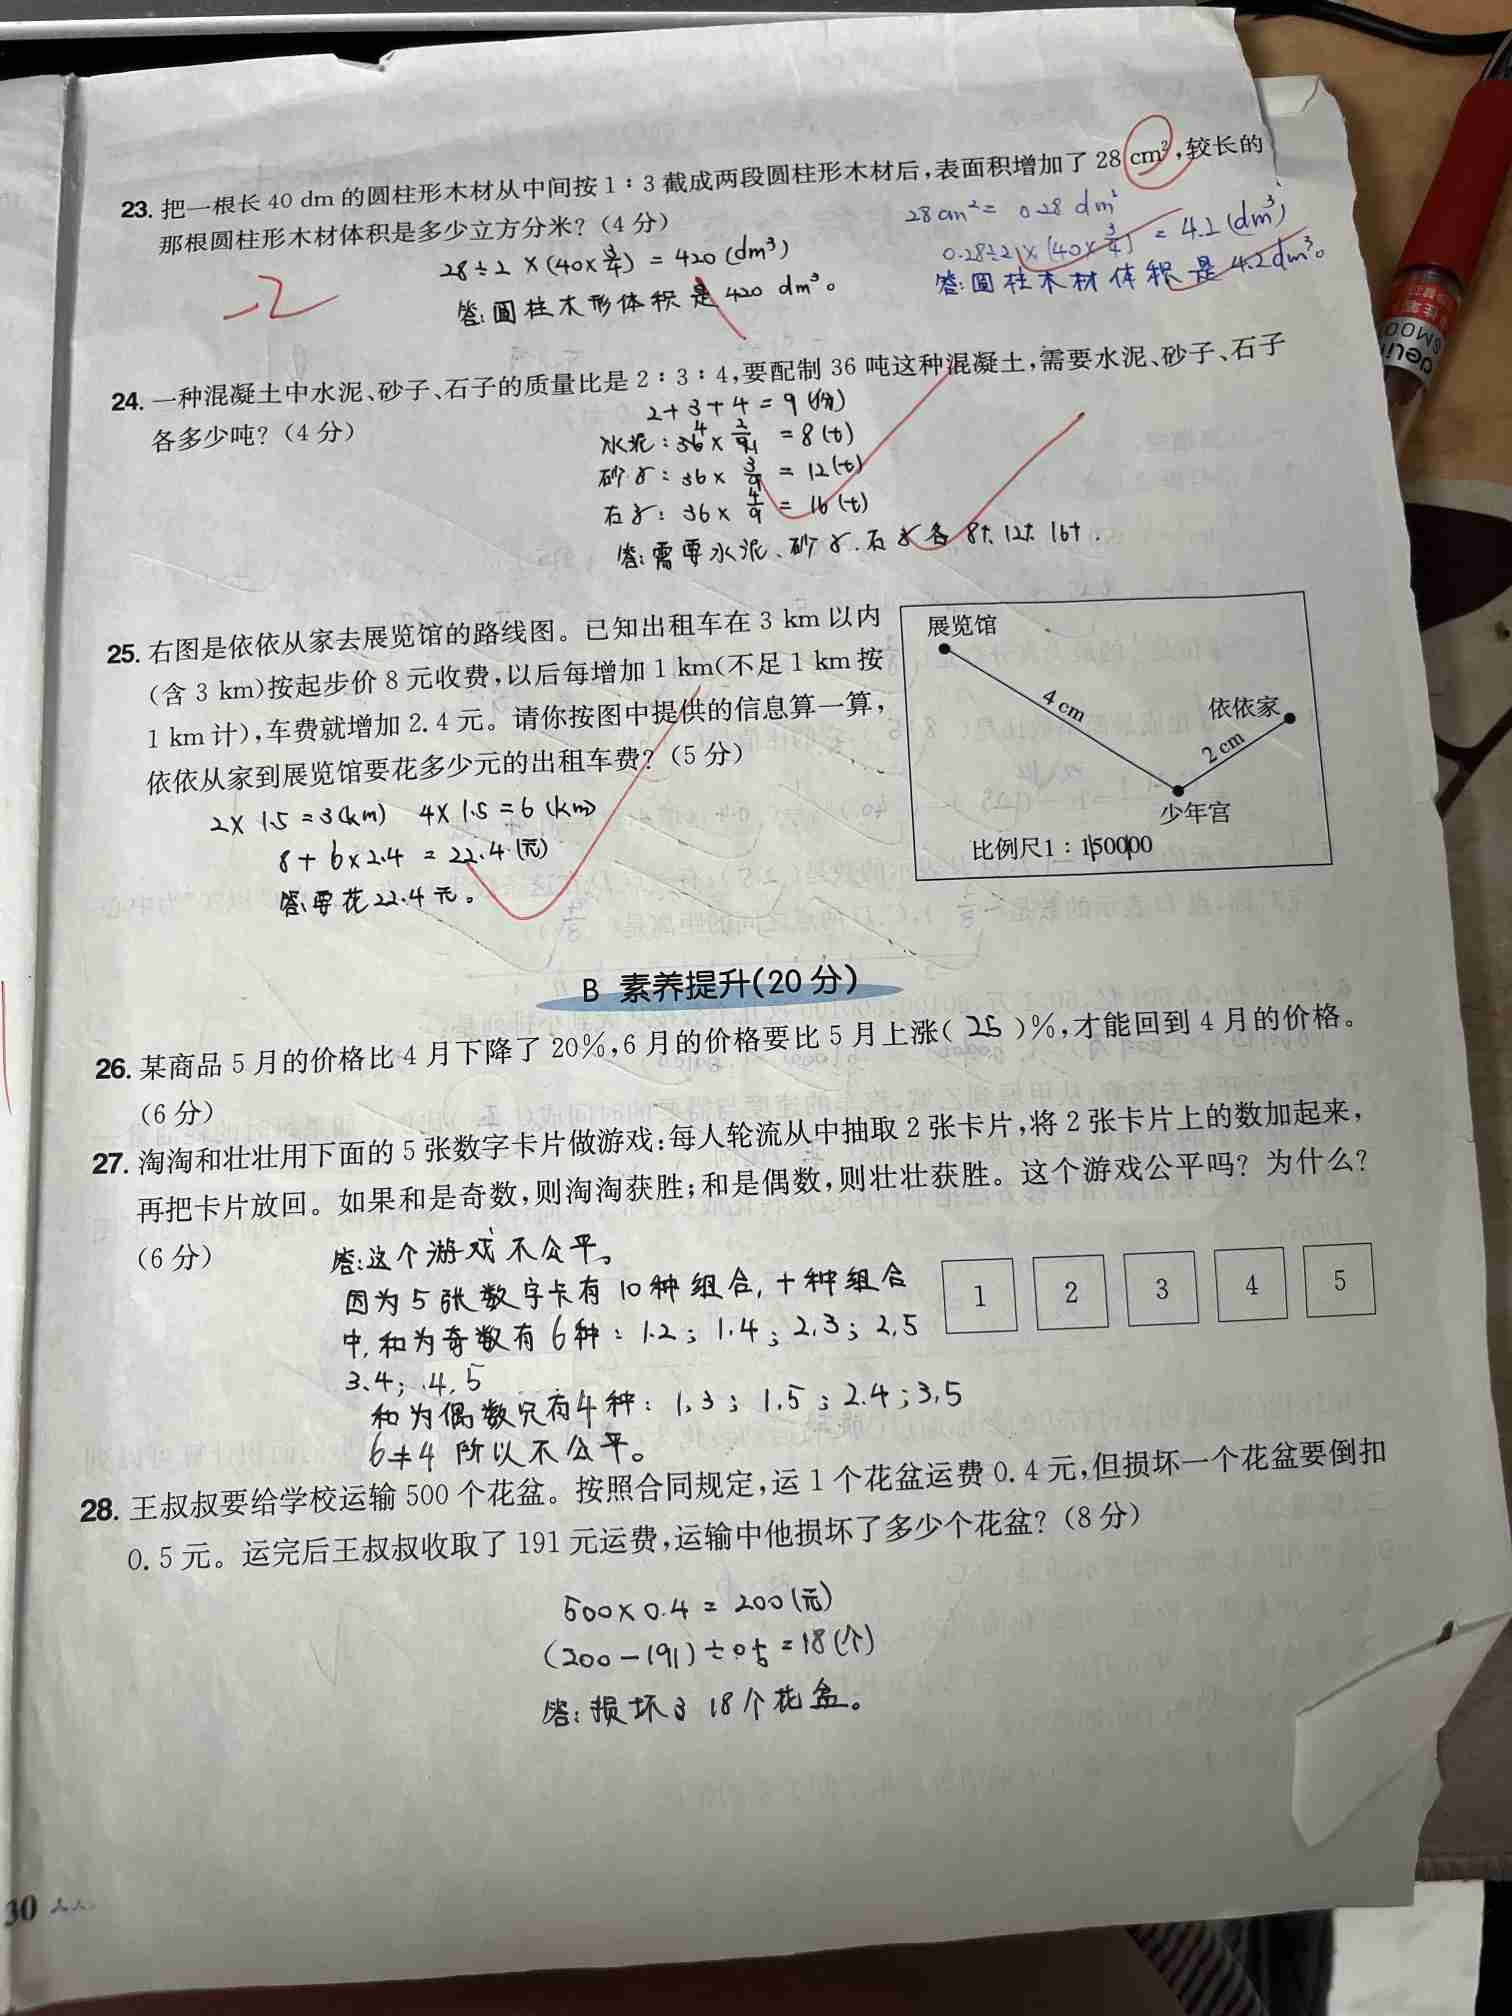 23. 把一根长 40 dm 的圆柱形木材从中间按 1∶3 截成两段圆柱形木材后,表面积增加了 28 cm²,较长的
那根圆柱形木材体积是多少立方分米?(4 分)
28÷2×(40×3/4)=420(dm³)
答:圆柱木形体积是420 dm³。
-2
28cm²= 0.28 dm²
0.28÷2×(40×3/4)=4.2(dm³)
答:圆柱木材体积是4.2dm³。
24. 一种混凝土中水泥、砂子、石子的质量比是 2∶3∶4,要配制 36 吨这种混凝土,需要水泥、砂子、石子
各多少吨?(4 分)
2+3+4=9(份)
水泥:36×2/9=8(t)
砂子:36×3/9=12(t)
石子:36×4/9=16(t)
答:需要水泥、砂子.石子各8t.12t.16t.
25. 右图是依依从家去展览馆的路线图。已知出租车在 3 km 以内
(含 3 km)按起步价 8 元收费,以后每增加 1 km(不足 1 km 按
1 km 计),车费就增加 2.4 元。请你按图中提供的信息算一算,
依依从家到展览馆要花多少元的出租车费?(5 分)
2×1.5=3(km) 4×1.5=6(km)
8+6×2.4=22.4(元)
答:要花22.4元。
展览馆
4 cm
依依家
2 cm
少年宫
比例尺1∶150000
B 素养提升(20 分)
26. 某商品 5 月的价格比 4 月下降了 20%,6 月的价格要比 5 月上涨( 25 )%,才能回到 4 月的价格。
(6 分)
27. 淘淘和壮壮用下面的 5 张数字卡片做游戏:每人轮流从中抽取 2 张卡片,将 2 张卡片上的数加起来,
再把卡片放回。如果和是奇数,则淘淘获胜;和是偶数,则壮壮获胜。这个游戏公平吗?为什么?
(6 分)
答:这个游戏不公平。
因为5张数字卡有10种组合,十种组合
中,和为奇数有6种:1.2;1.4;2.3;2.5
3.4;4.5
和为偶数只有4种:1,3;1.5;2.4;3,5
6≠4 所以不公平。
1 2 3 4 5
28. 王叔叔要给学校运输 500 个花盆。按照合同规定,运 1 个花盆运费 0.4 元,但损坏一个花盆要倒扣
0.5 元。运完后王叔叔收取了 191 元运费,运输中他损坏了多少个花盆?(8 分)
500×0.4=200(元)
(200-191)÷0.5=18(个)
答:损坏了18个花盆。
30